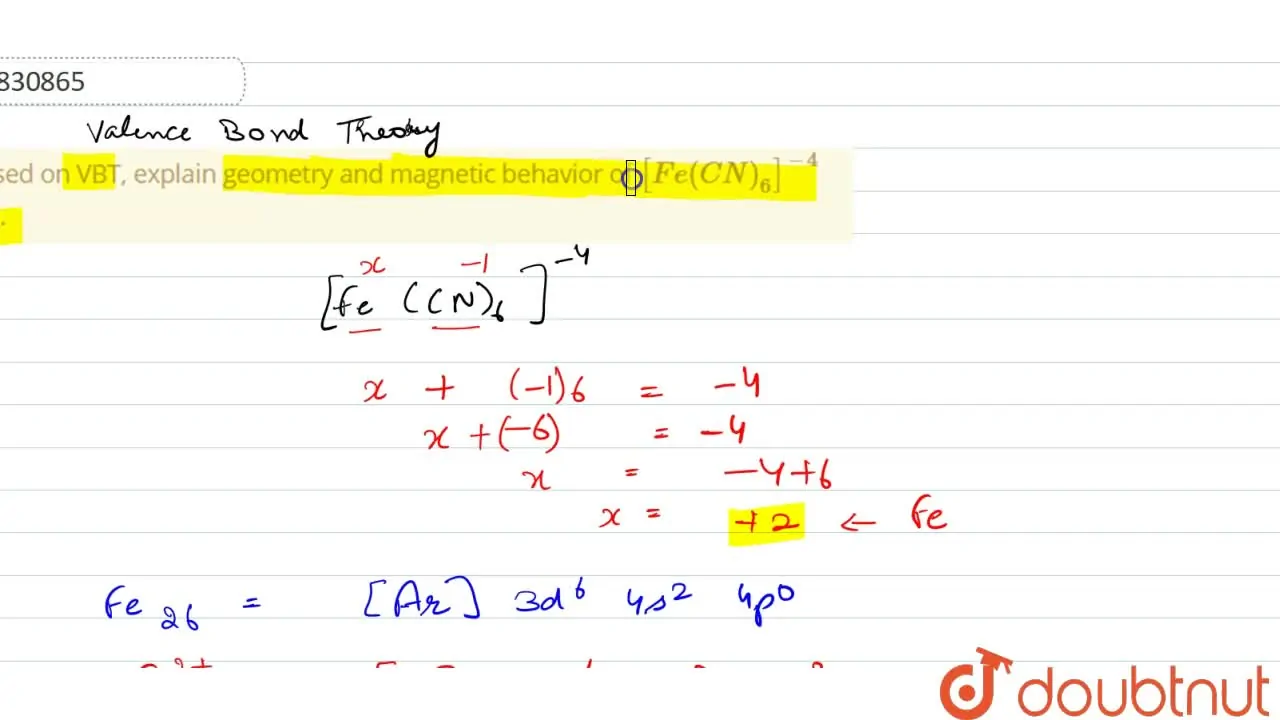 830865
Valence Bond Theory
sed on VBT, explain geometry and magnetic behavior o [Fe(CN)₆]⁻⁴
.
x -1
[Fe (CN)₆]⁻⁴
x + (-1)6 = -4
x +(-6) = -4
x = -4+6
x = +2 ← Fe
Fe ₂₆ = [Ar] 3d⁶ 4s² 4p⁰
doubtnut